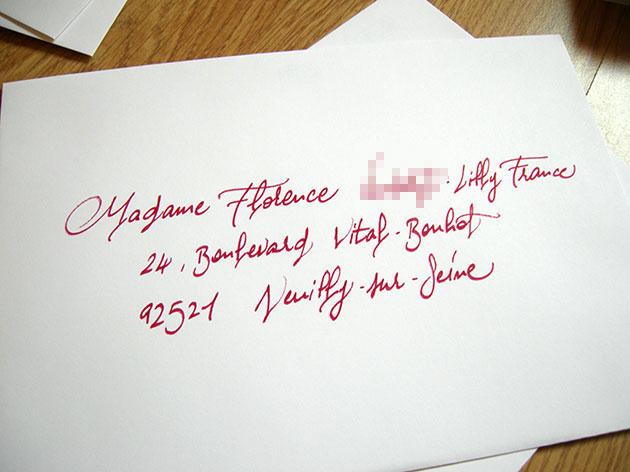 Madame Florence - Lilly France
24, Boulevard Vital-Bouhot
92521 Neuilly-sur-Seine